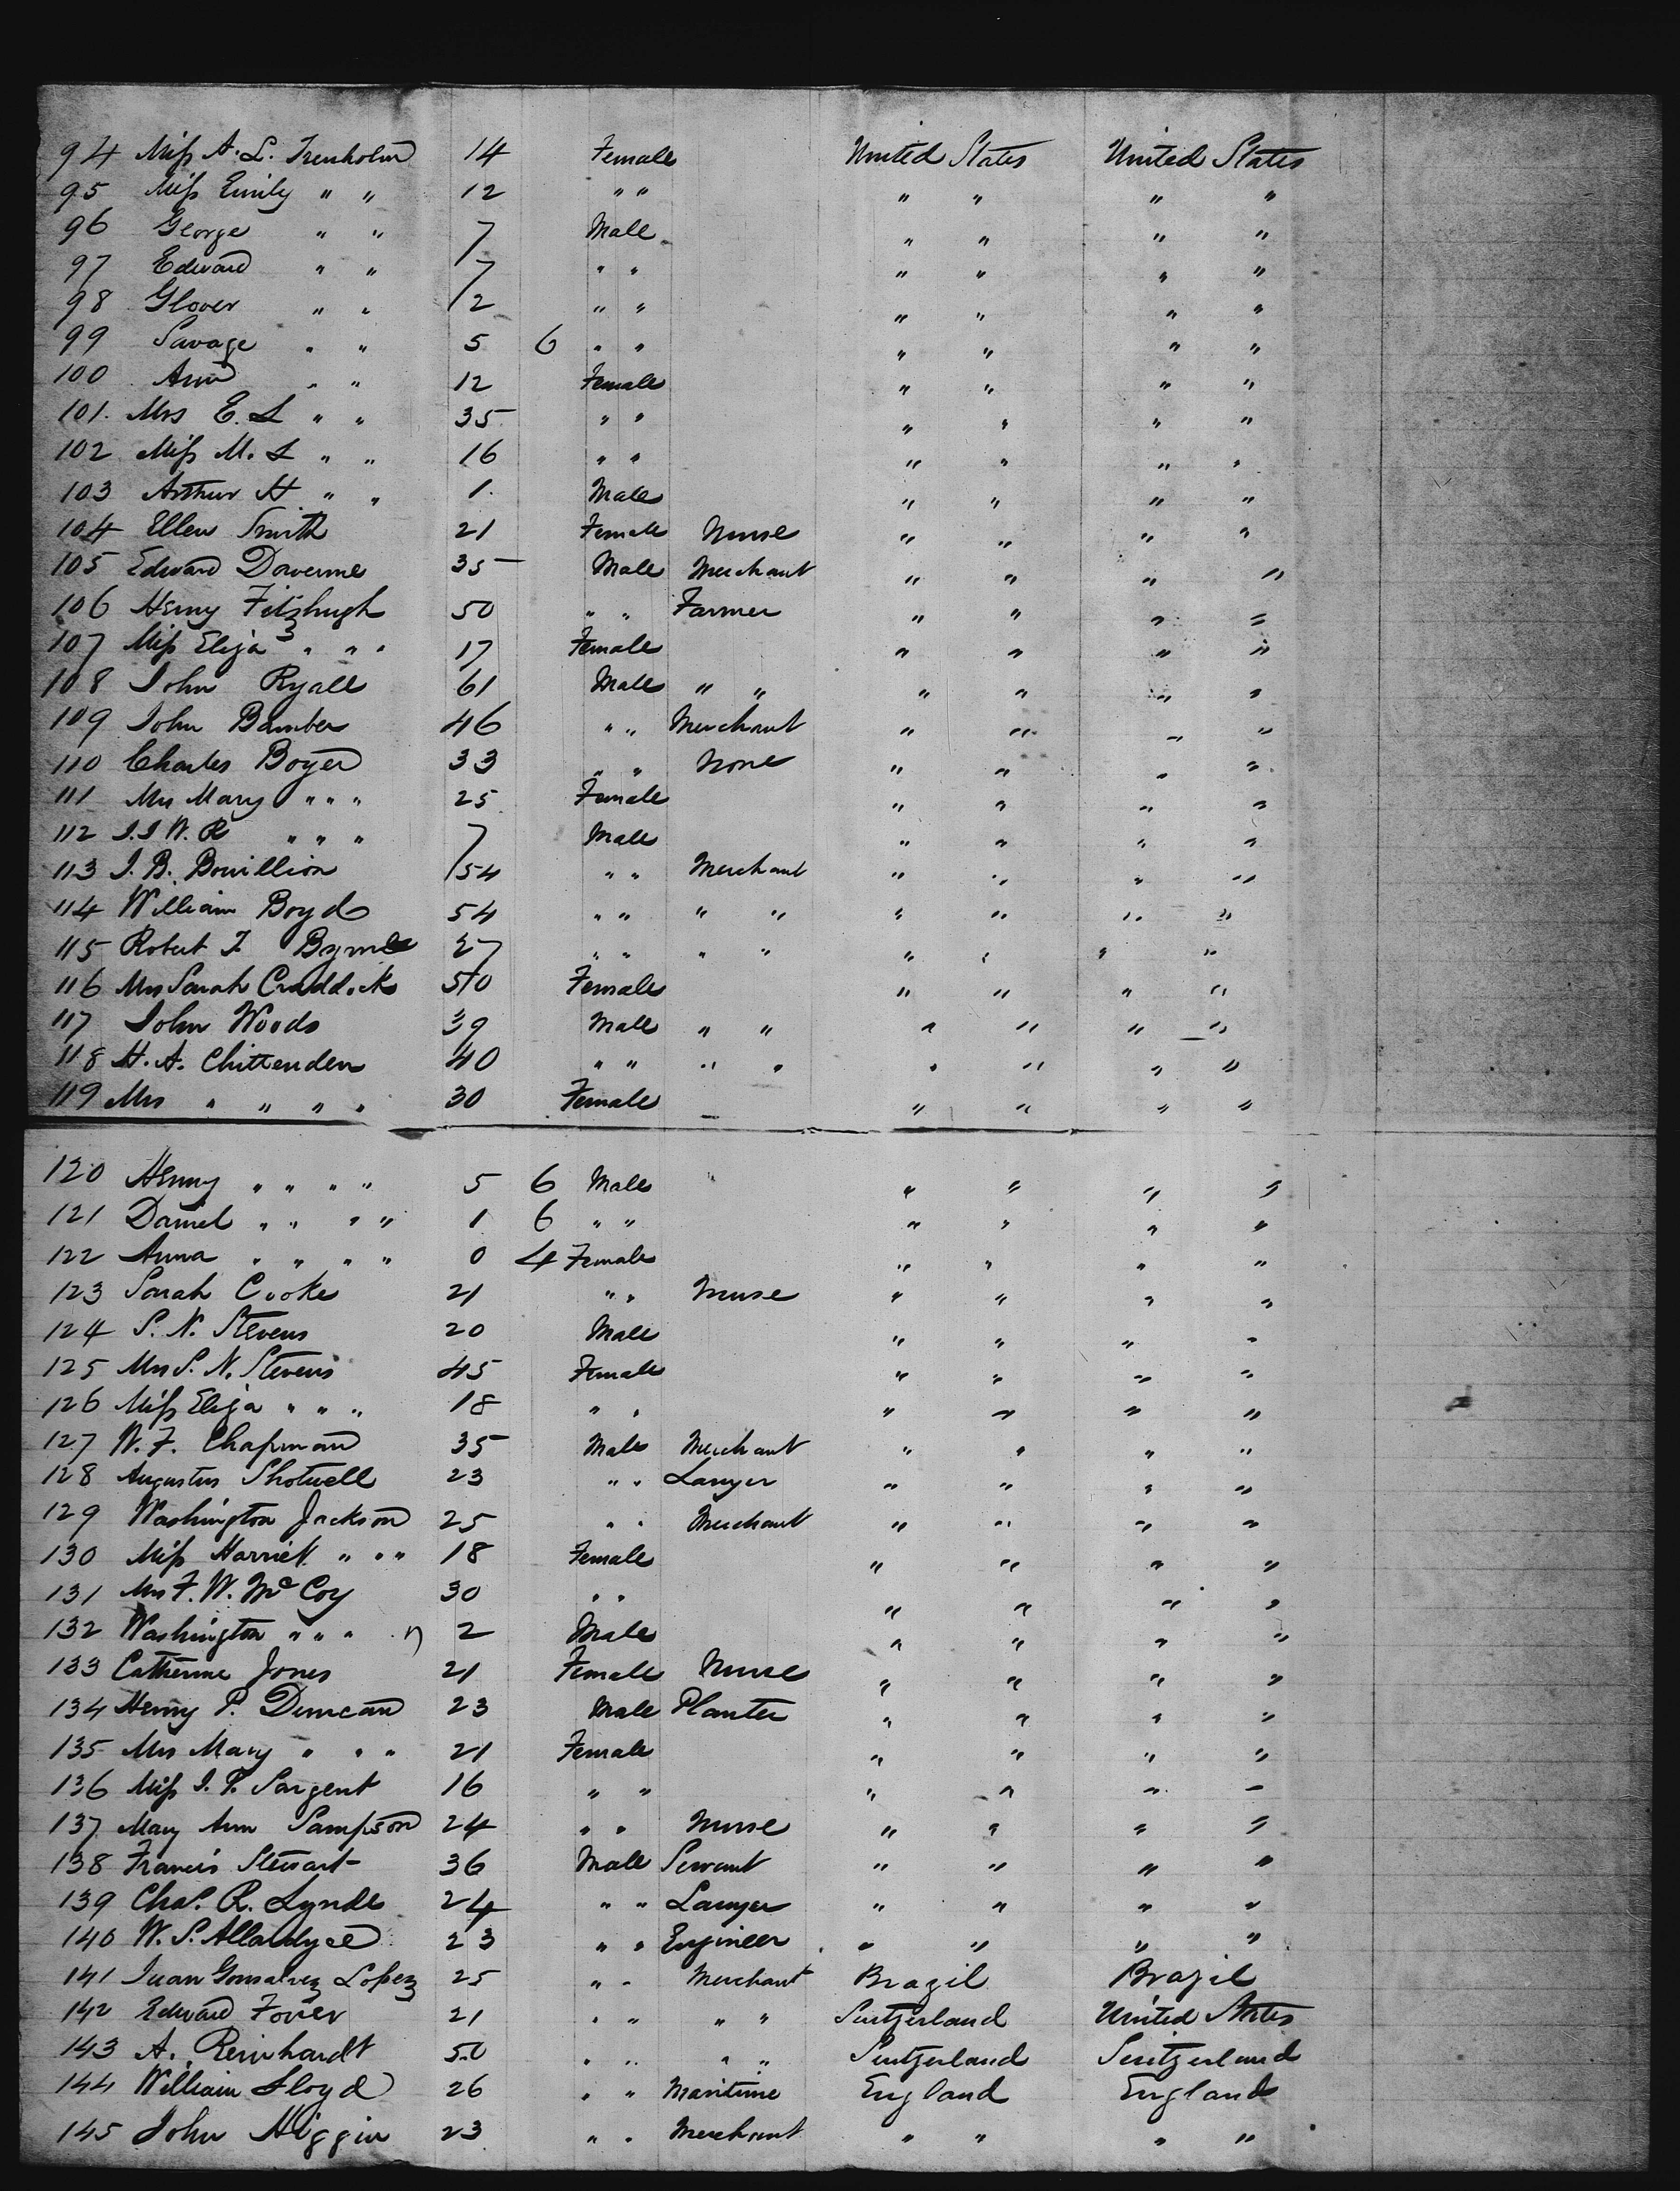 94 Miss A. L. Trenholm 14 Female United States United States
95 Miss Emily " " 12 " " " " " "
96 George " " 7 Male " " " "
97 Edward " " 7 " " " " " "
98 Glover " " 2 " " " " " "
99 Savage " " 5 6 " " " " " "
100 Ann " " 12 Female " " " "
101. Mrs E. L " " 35 " " " " " "
102 Miss M. L " " 16 " " " " " "
103 Arthur H " " 1 Male " " " "
104 Ellen Smith 21 Female Nurse " " " "
105 Edward Daverne 35 Male Merchant " " " "
106 Henry Fitzhugh 50 " " Farmer " " " "
107 Miss Eliza " " " 17 Female " " " "
108 John Ryall 61 Male " " " " " "
109 John Bamber 46 " " Merchant " " " "
110 Charles Boyer 33 " " None " " " "
111 Mrs Mary " " " 25 Female " " " "
112 J. J W. R " " " 7 Male " " " "
113 J. B. Bouillion 54 " " Merchant " " " "
114 William Boyd 54 " " " " " " " "
115 Robert F Byrne 27 " " " " " " " "
116 Mrs Sarah Craddock 50 Female " " " "
117 John Woods 39 Male " " " " " "
118 H. A. Chittenden 40 " " " " " " " "
119 Mrs " " " " 30 Female " " " "
120 Henry " " " " 5 6 Male " " " "
121 Daniel " " " " 1 6 " " " " " "
122 Anna " " " " 0 4 Female " " " "
123 Sarah Cooke 21 " " Nurse " " " "
124 S. N. Stevens 20 Male " " " "
125 Mrs S. N. Stevens 45 Female " " " "
126 Miss Eliza " " " 18 " " " " " "
127 W. F. Chapman 35 Male Merchant " " " "
128 Augustus Shotwell 23 " " Lawyer " " " "
129 Washington Jackson 25 " " Merchant " " " "
130 Miss Harriet " " " 18 Female " " " "
131 Mrs F. W. McCoy 30 " " " " " "
132 Washington " " " " 2 Male " " " "
133 Catherine Jones 21 Female Nurse " " " "
134 Henry P. Duncan 23 Male Planter " " " "
135 Mrs Mary " " " 21 Female " " " "
136 Miss J. P. Sargent 16 " " " " " "
137 Mary Ann Sampson 24 " " Nurse " " " "
138 Francis Stewart 36 Male Servant " " " "
139 Chas. R. Lynde 24 " " Lawyer " " " "
140 W. S. Allardyce 23 " " Engineer " " " "
141 Juan Gonsalvez Lopez 25 " " Merchant Brazil Brazil
142 Edward Forer 21 " " " " Switzerland United States
143 A. Reinhardt 50 " " " " Switzerland Switzerland
144 William Lloyd 26 " " Maritime England England
145 John Higgin 23 " " Merchant " " " "